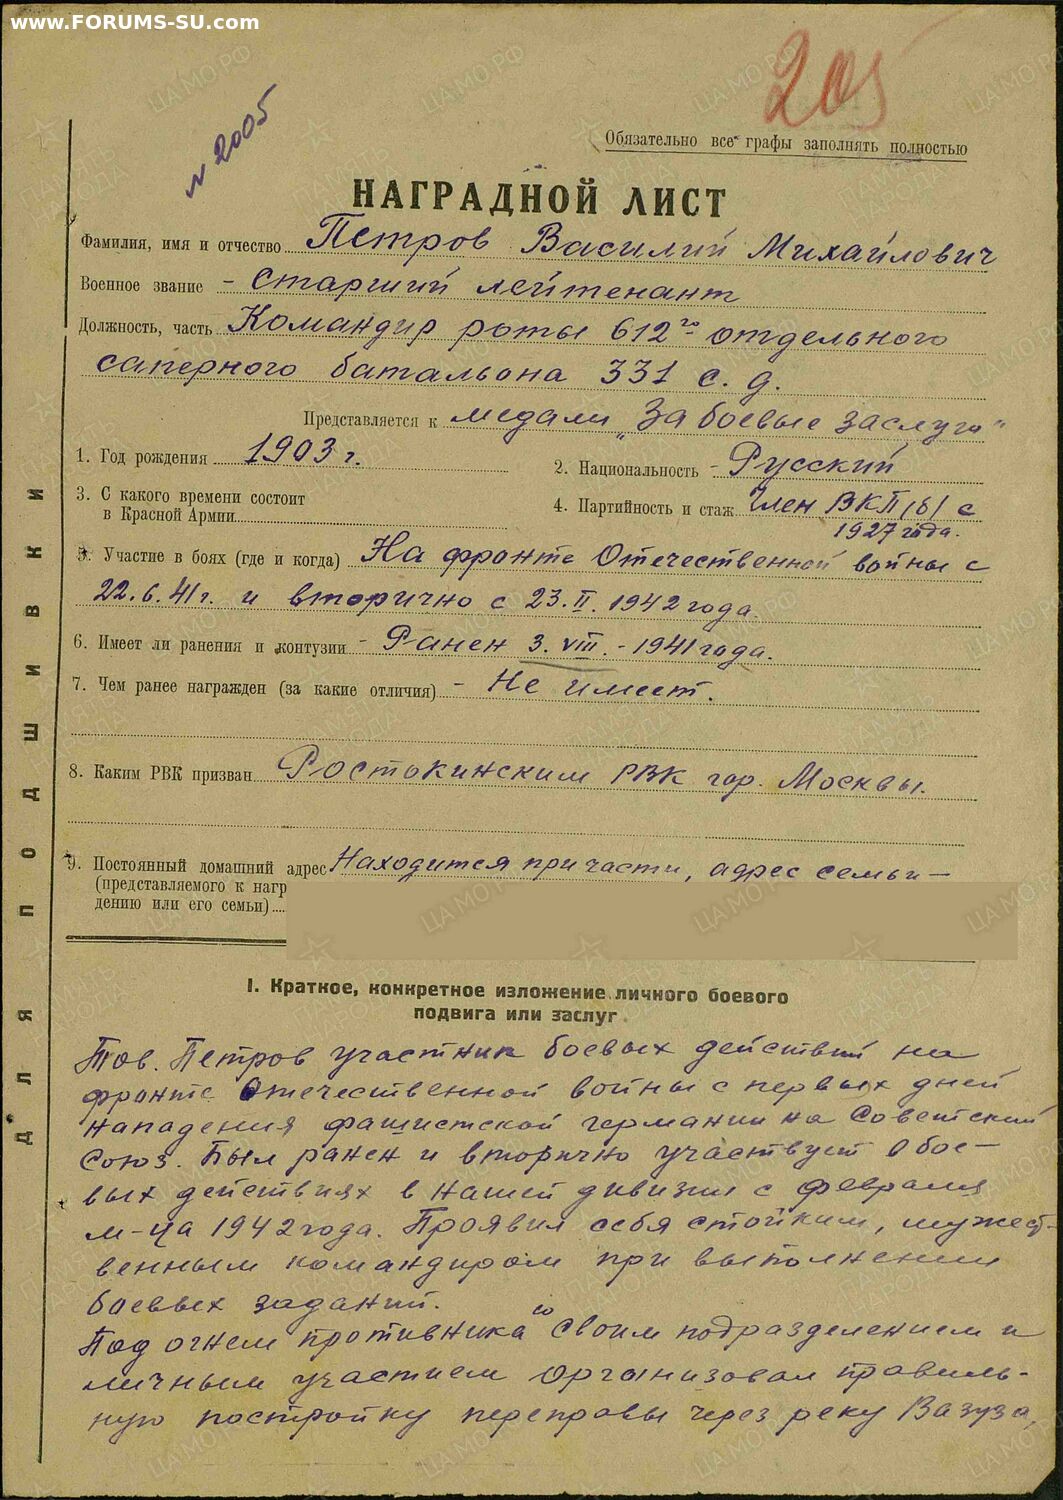 www.FORUMS-SU.com
205
N 2005
Обязательно все графы заполнять полностью
НАГРАДНОЙ ЛИСТ
Фамилия, имя и отчество Петров Василий Михайлович
Военное звание - старший лейтенант
Должность, часть Командир роты 612го отдельного
саперного батальона 331 с. д.
Представляется к медали „За боевые заслуги"
1. Год рождения 1903 г.
2. Национальность - Русский
3. С какого времени состоит
в Красной Армии
4. Партийность и стаж Член ВКП(б) с
1927 года.
5. Участие в боях (где и когда) На фронте Отечественной войны с
22.6.41 г. и вторично с 23.II.1942 года.
6. Имеет ли ранения и контузии - Ранен 3.VIII.-1941 года.
7. Чем ранее награжден (за какие отличия) - Не имеет.
8. Каким РВК призван Ростокинским РВК гор. Москвы.
9. Постоянный домашний адрес Находится при части, адрес семьи —
(представляемого к нагр
дению или его семьи)
I. Краткое, конкретное изложение личного боевого
подвига или заслуг
Тов. Петров участник боевых действий на
фронте Отечественной войны с первых дней
нападения фашистской германии на Советский
Союз. Был ранен и вторично участвует в бое-
вых действиях в нашей дивизии с февраля
м-ца 1942 года. Проявил себя стойким, мужест-
венным командиром при выполнении
боевых заданий.
Под огнем противника со своим подразделением и
личным участием организовал правиль-
ную постройку переправы через реку Вазуза,
ДЛЯ ПОДШИВКИ
ЦАМО РФ
ПАМЯТЬ НАРОДА